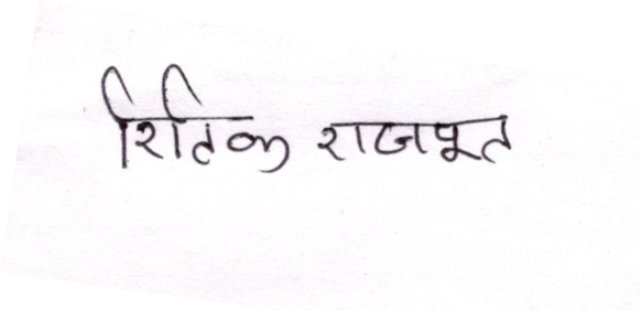 रितिक राजपूत